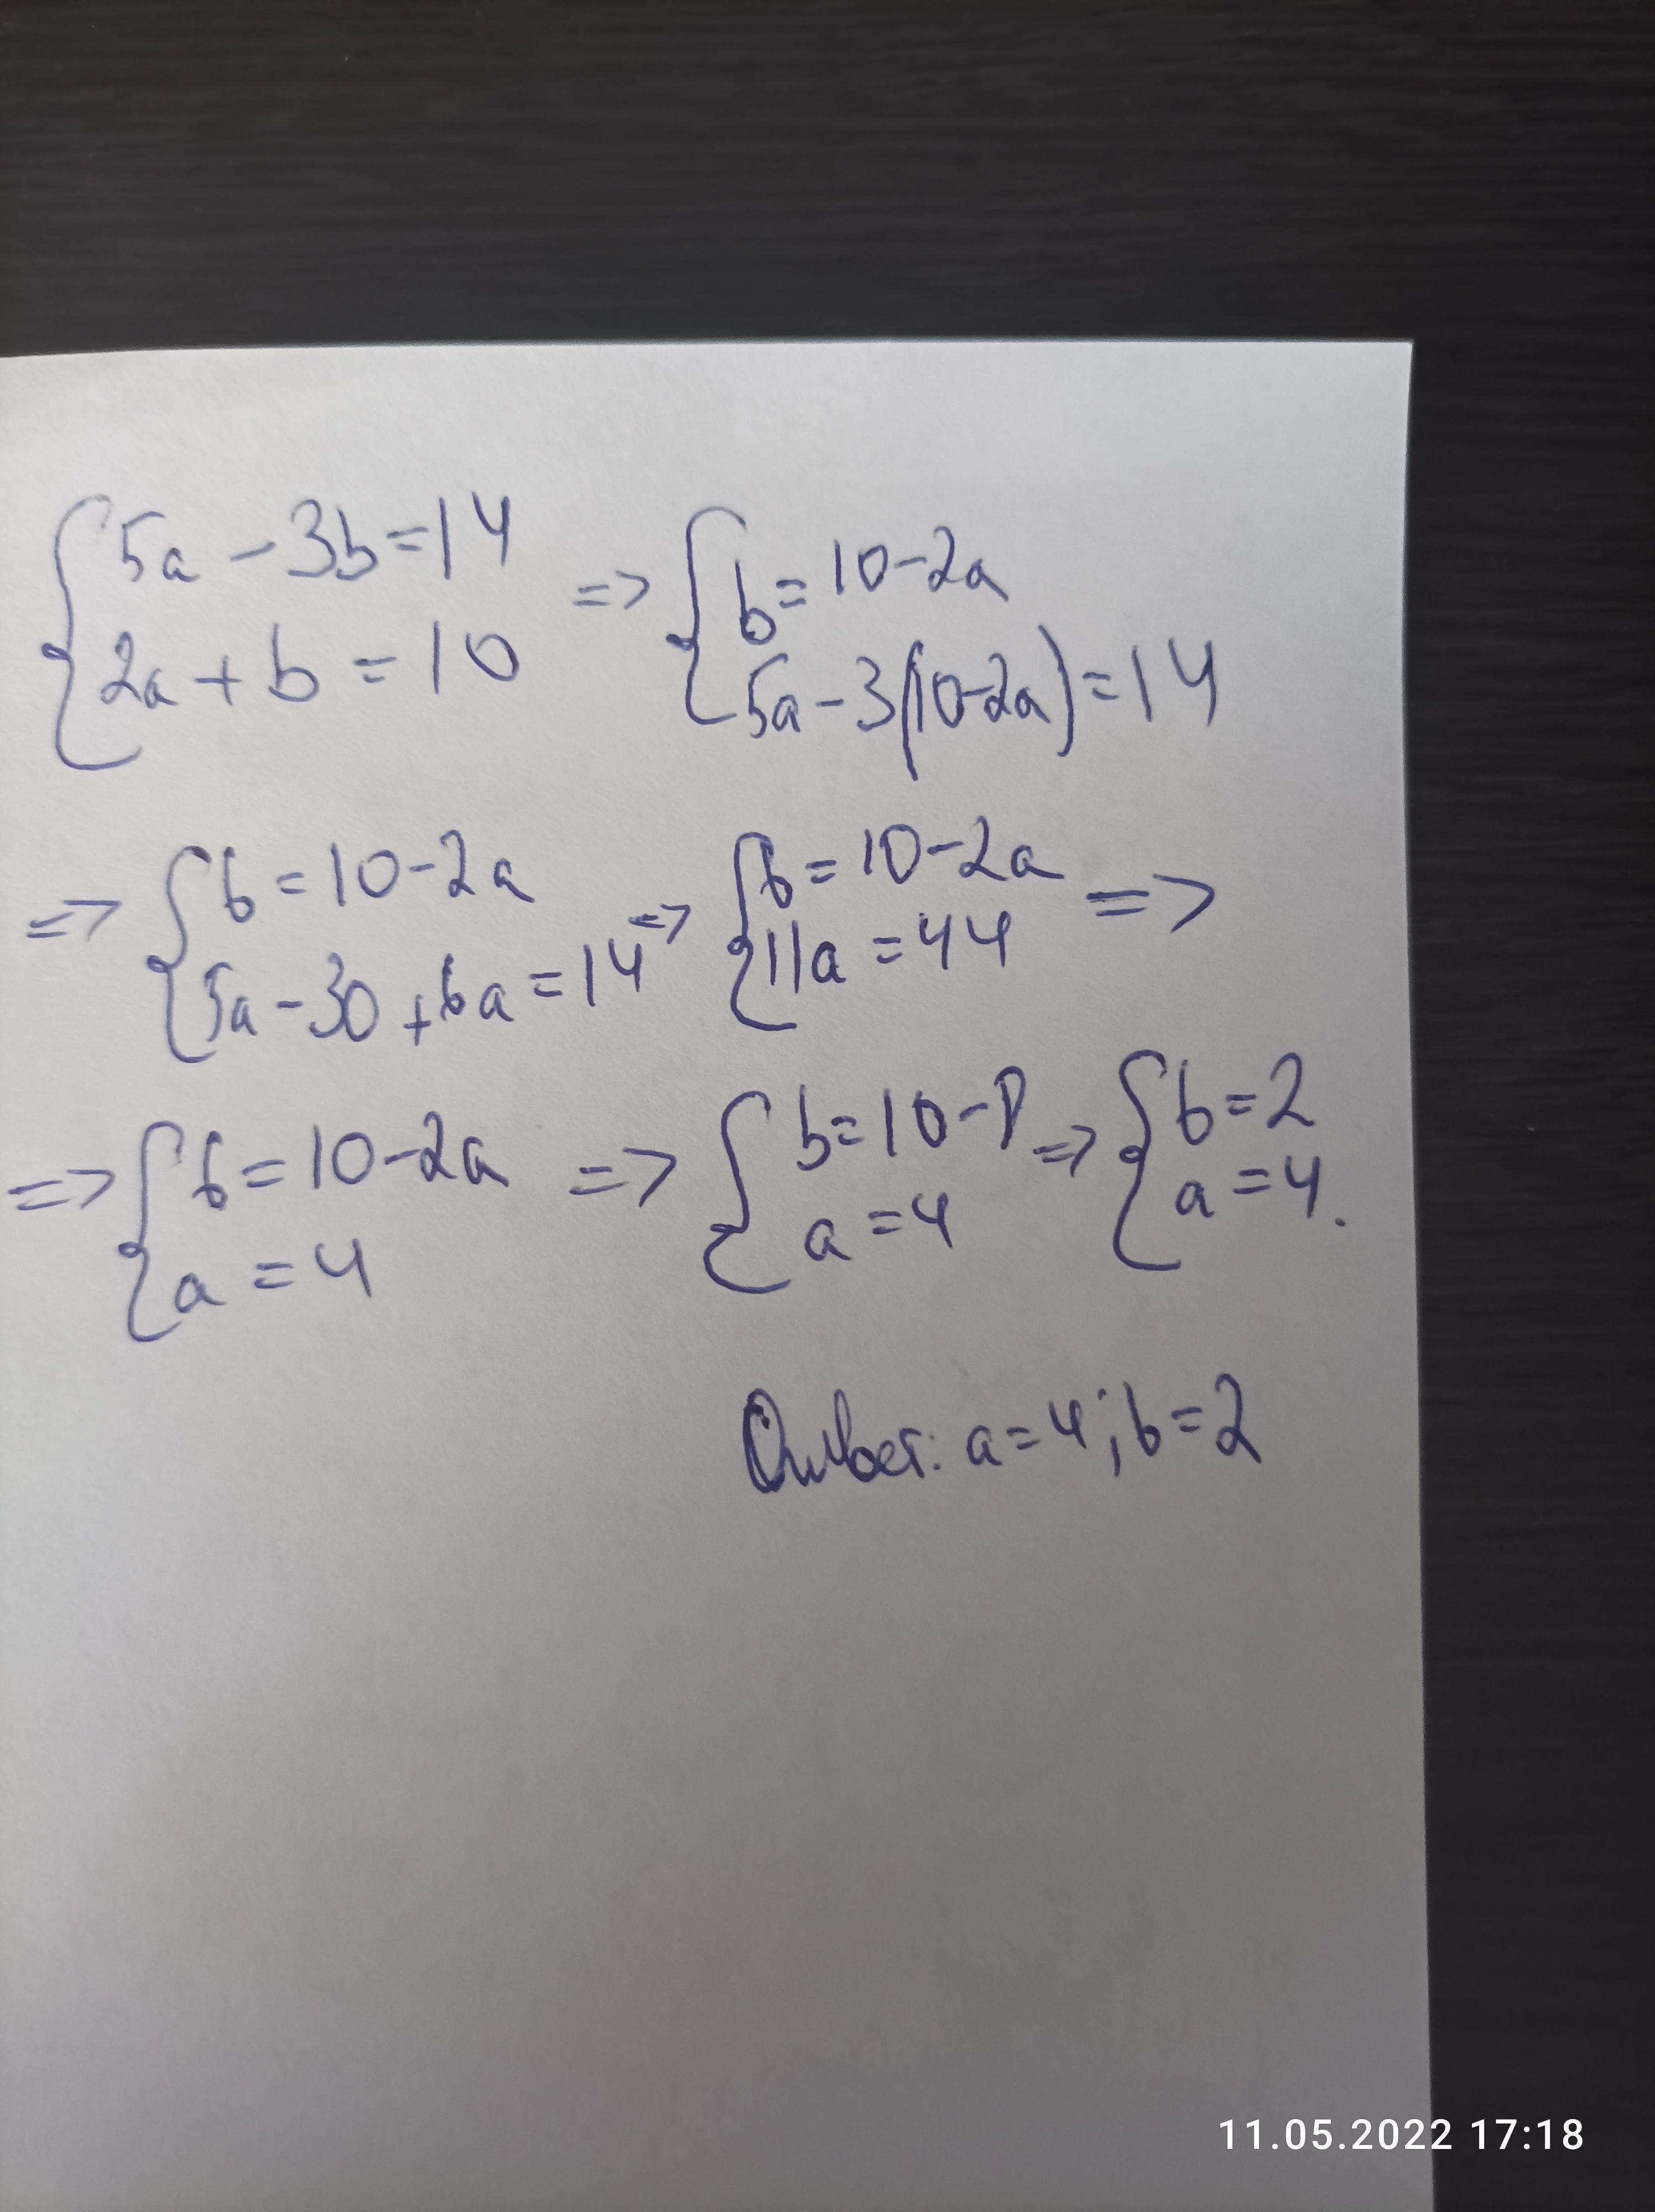 {5a - 3b = 14
2a + b = 10 => {b = 10 - 2a
5a - 3(10 - 2a) = 14
=> {b = 10 - 2a
5a - 30 + 6a = 14 => {b = 10 - 2a
11a = 44 =>
=> {b = 10 - 2a
a = 4 => {b = 10 - 8
a = 4 => {b = 2
a = 4.
Ответ: a = 4; b = 2
11.05.2022 17:18